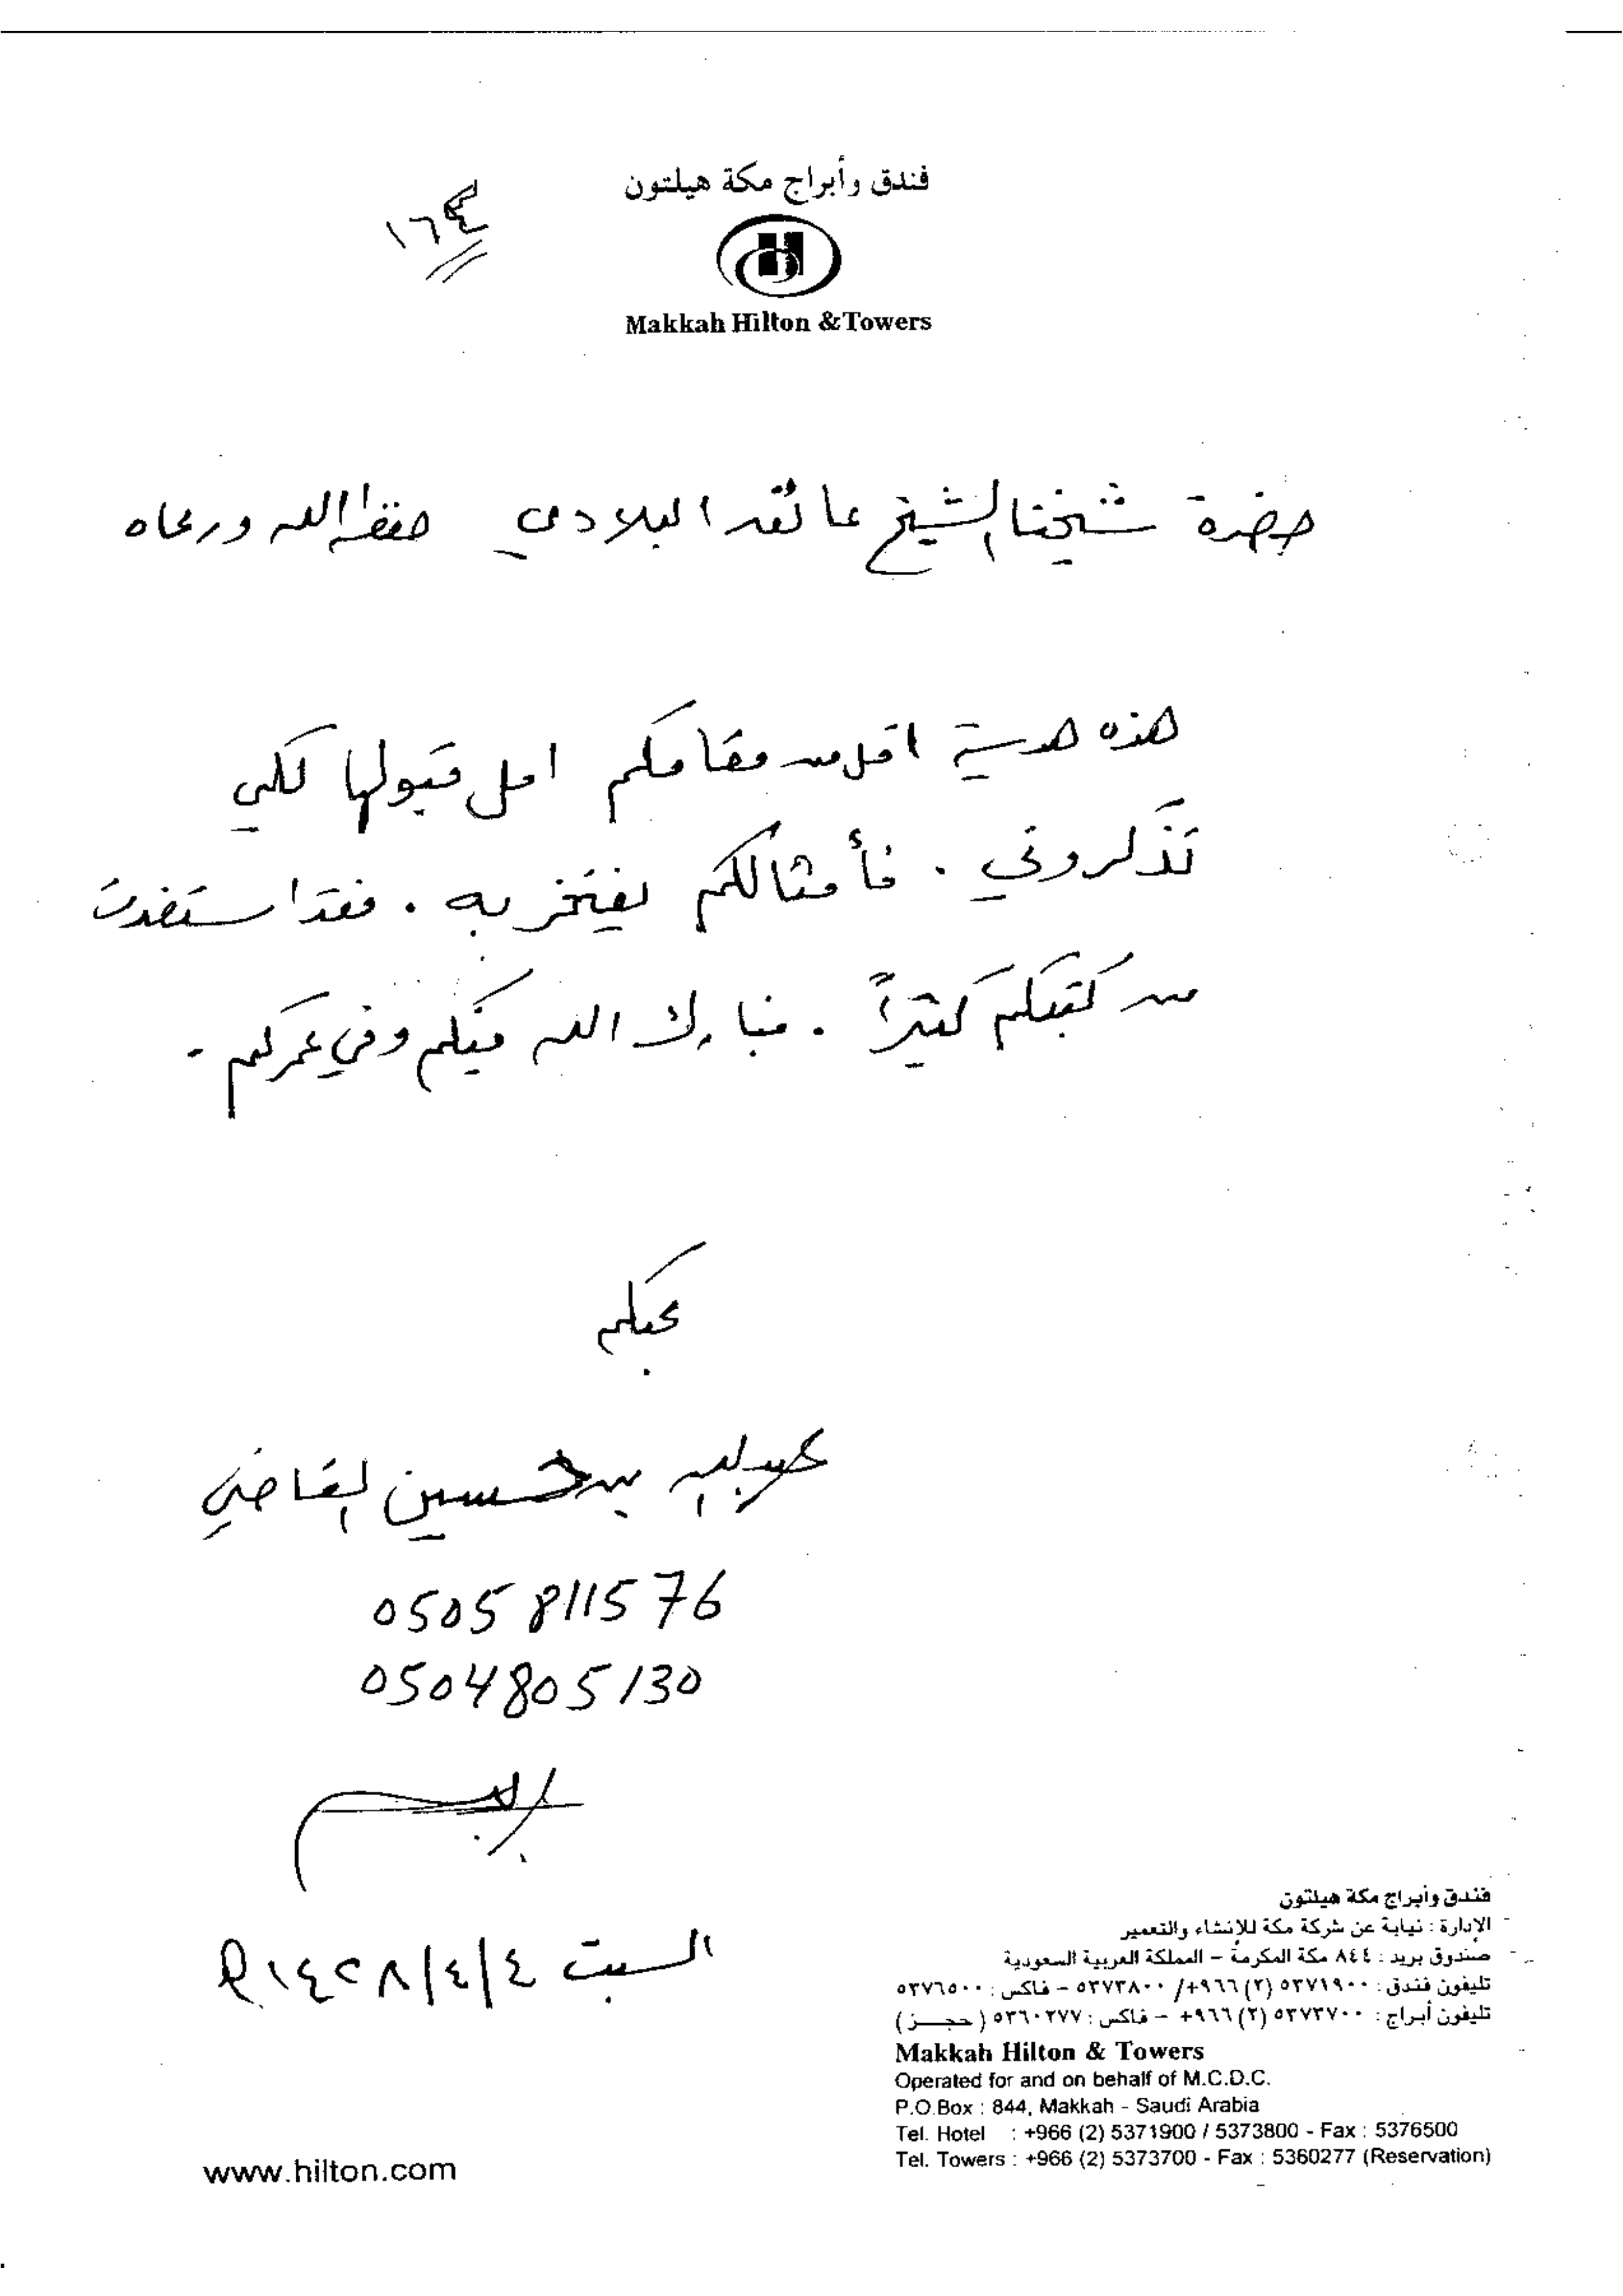 فندق وأبراج مكة هيلتون
١٦٤
Makkah Hilton & Towers
حضرة شيخنا الشيخ عاتق البلادي حفظه الله ورعاه
هذه هدية اقل من مقامكم امل قبولها لكي
تذكروني . فأمثالكم نفتخر به . فقد استفدت
من كتبكم كثيراً . فبارك الله فيكم وفي عمركم .
محبكم
عبدالله بن حسين القاضي
0505811576
0504805130
السبت ١٤٢٨/٤/٤ هـ
فندق وأبراج مكة هيلتون
الإدارة : نيابة عن شركة مكة للانشاء والتعمير
صندوق بريد : ٨٤٤ مكة المكرمة – المملكة العربية السعودية
تليفون فندق : ٥٣٧١٩٠٠ (٢) ٩٦٦+/ ٥٣٧٣٨٠٠ – فاكس : ٥٣٧٦٥٠٠
تليفون أبراج : ٥٣٧٣٧٠٠ (٢) ٩٦٦+ – فاكس : ٥٣٦٠٢٧٧ ( حجـــز )
Makkah Hilton & Towers
Operated for and on behalf of M.C.D.C.
P.O.Box : 844, Makkah - Saudi Arabia
Tel. Hotel : +966 (2) 5371900 / 5373800 - Fax : 5376500
Tel. Towers : +966 (2) 5373700 - Fax : 5360277 (Reservation)
www.hilton.com